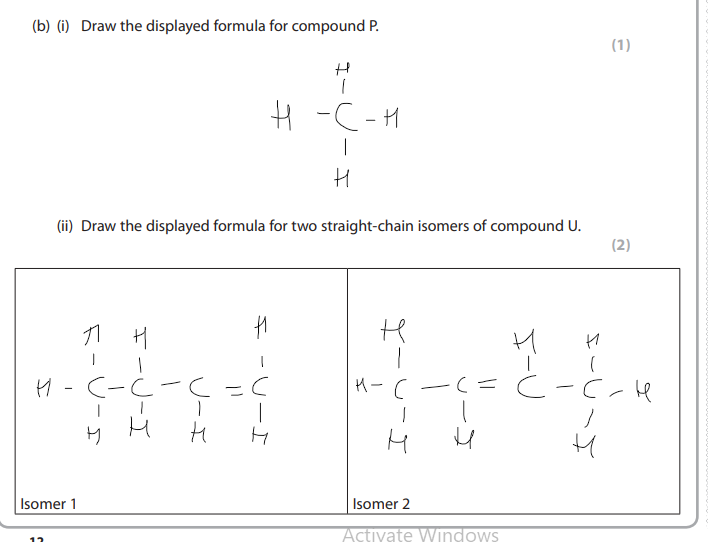 (b) (i) Draw the displayed formula for compound P.
(1)
H
H - C - H
H
(ii) Draw the displayed formula for two straight-chain isomers of compound U.
(2)
H H H
H - C - C - C = C
H H H H
Isomer 1
H H H
H - C - C = C - C - H
H H H
Isomer 2
12
Activate Windows